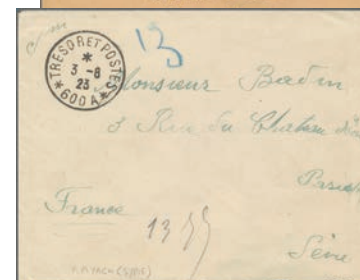 13
TRESOR ET POSTES
*
3 - 8
23
* 600A *
Monsieur Badin
8 Rue du Chateau
Paris
France
1355
Seine